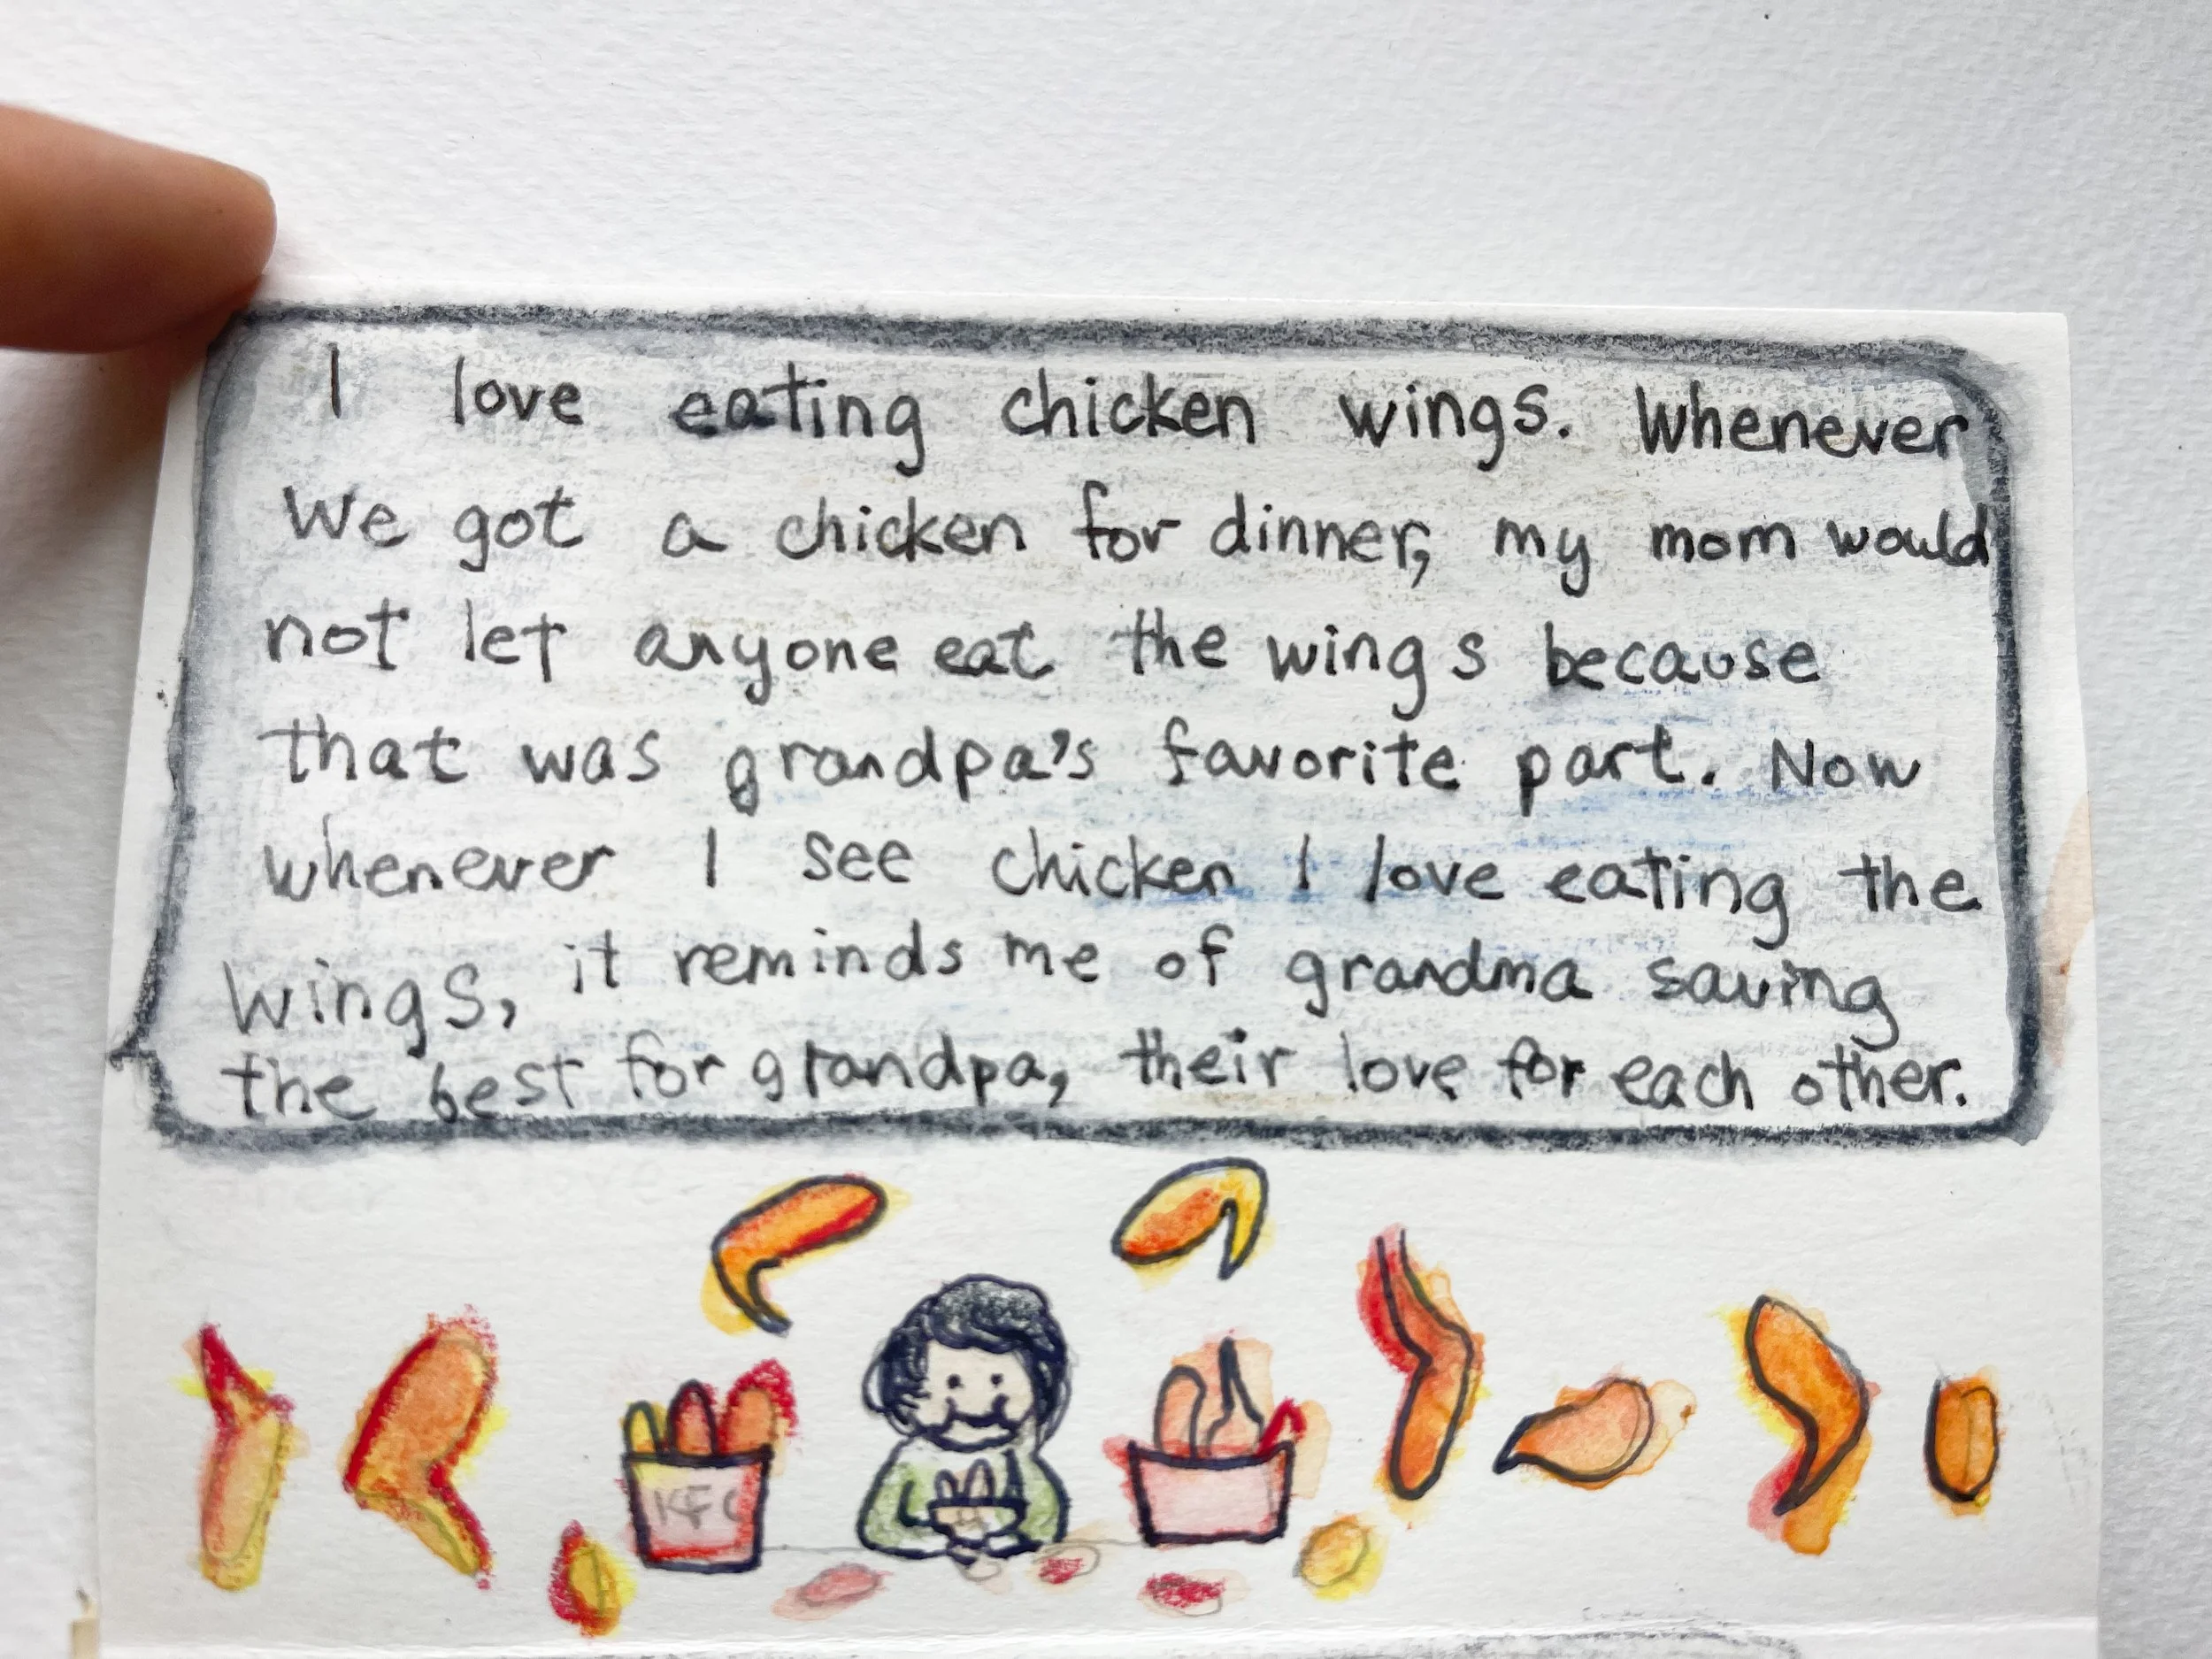 I love eating chicken wings. Whenever
we got a chicken for dinner, my mom would
not let anyone eat the wings because
that was grandpa's favorite part. Now
whenever I see chicken I love eating the
wings, it reminds me of grandma saving
the best for grandpa, their love for each other.
KFC